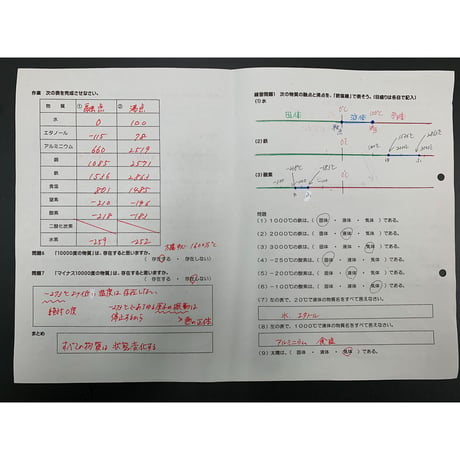 作業 次の表を完成させなさい。
物 質 ① 融点 ② 沸点
水 0 100
エタノール -115 78
アルミニウム 660 2519
銅 1085 2571
鉄 1536 2863
食塩 801 1485
窒素 -210 -196
酸素 -218 -183
二酸化炭素
水素 -259 -252
問題6 「10000度の物質」は、存在すると思いますか。
(存在する ・ 存在しない)
問題7 「マイナス10000度の物質」は、存在すると思いますか。
(存在する ・ 存在しない)
絶対0度
まとめ
すべての物質は状態変化する
練習問題1 次の物質の融点と沸点を、「数直線」で表そう。(目盛りは各自で記入)
(1) 水
固体 0℃ 液体 100℃ 気体
(2) 鉄
0℃
(3) 酸素
0℃
問題
(1) 1000℃の鉄は、( 固体 ・ 液体 ・ 気体 ) である。
(2) 2000℃の鉄は、( 固体 ・ 液体 ・ 気体 ) である。
(3) 3000℃の鉄は、( 固体 ・ 液体 ・ 気体 ) である。
(4) -250℃の酸素は、( 固体 ・ 液体 ・ 気体 ) である。
(5) -200℃の酸素は、( 固体 ・ 液体 ・ 気体 ) である。
(6) -100℃の酸素は、( 固体 ・ 液体 ・ 気体 ) である。
(7) 左の表で、20℃で液体の物質名をすべて答えなさい。
水 エタノール
(8) 左の表で、1000℃で液体の物質名をすべて答えなさい。
アルミニウム 食塩
(9) 太陽は、( 固体 ・ 液体 ・ 気体 ) である。